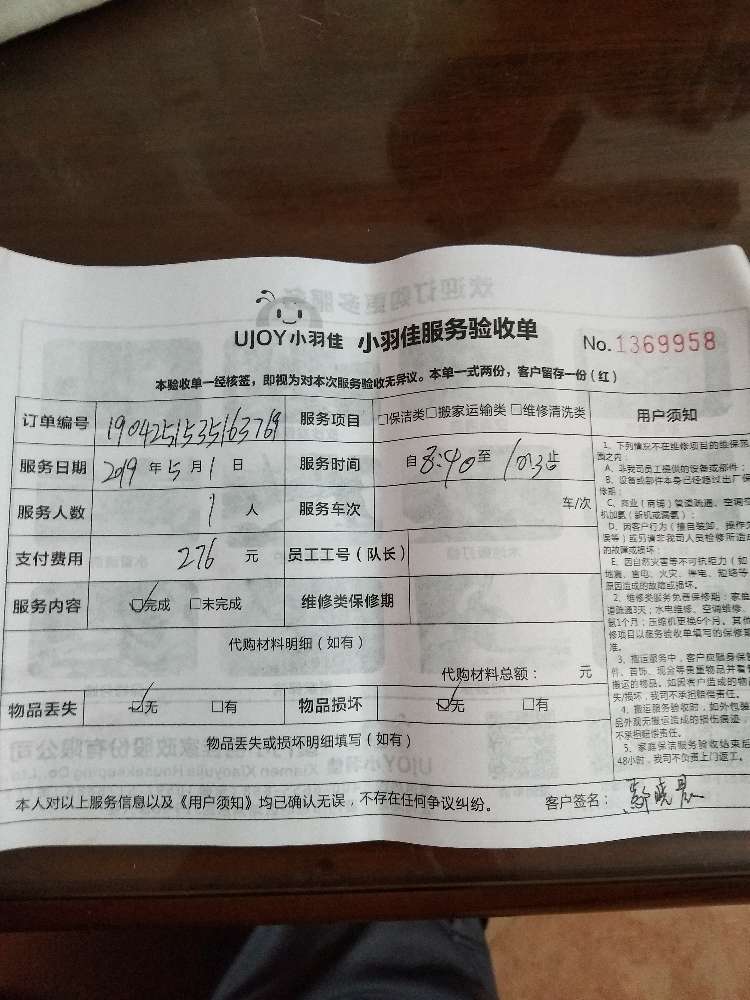 UJOY小羽佳 小羽佳服务验收单 No.1369958
本验收单一经核签，即视为对本次服务验收无异议。本单一式两份，客户留存一份（红）
订单编号 190425153516376 服务项目 □保洁类□搬家运输类 □维修清洗类 用户须知
服务日期 2019 年 5 月 1 日 服务时间 自 8:40 至
服务人数 1 人 服务车次 车/次
支付费用 276 元 员工工号（队长）
服务内容 ☑完成 □未完成 维修类保修期
代购材料明细（如有）
代购材料总额： 元
物品丢失 ☑无 □有 物品损坏 ☑无 □有
物品丢失或损坏明细填写（如有）
本人对以上服务信息以及《用户须知》均已确认无误，不存在任何争议纠纷。 客户签名： 晓晨
1、下列情况不在维修项目的维保范
围之内：
A、非我司员工提供的设备或部件；
B、设备或部件本身已经超过出厂保
修期；
C、商业（商铺）管道疏通、空调
机加氨（新机或漏氨）；
D、因客户行为（擅自装卸、操作失
误等）或另请非我司人员检修所造成
的故障或损坏；
E、因自然灾害等不可抗力（如
地震、雷电、火灾、停电、短路等
原因造成的故障或损坏。
2、维修类服务免费保修期：家维
道疏通3天；水电维修、空调维修、
氨1个月；压缩机更换6个月。其他
修项目以服务验收单填写的保修期
准。
3、搬运服务中，客户应随身保管
件、首饰、现金等贵重物品并看管
搬运的物品。如因客户造成的物品
失/损坏，我司不承担赔偿责任。
4、搬运服务验收时，如外包装
品外观无搬运造成的损伤痕迹，
不承担赔偿责任。
5、家庭保洁服务验收结束后
48小时，我司不负责上门返工。